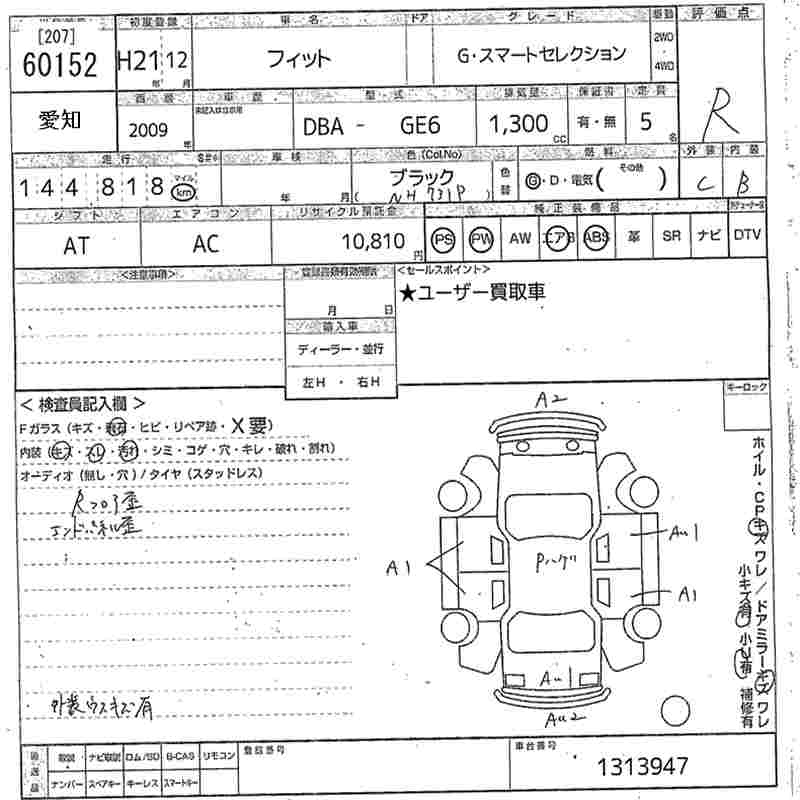 [207] 初度登録 車名 ドア グレード 車歴 評価点
60152 H21 12 フィット G・スマートセレクション 2WD・4WD R
年 月
愛知 車歴 型式 排気量 保証書 定員
2009年 DBA - GE6 1,300cc 有・無 5名
走行 車検 色(Col.No) 燃料 外装 内装
144818 マイル km 年 月 ブラック (NH731P) 色替 G・D・電気( その他 ) C B
シフト エアコン リサイクル預託金 純正装備品
AT AC 10,810円 PS PW AW エアB ABS 革 SR ナビ DTV
<注意事項> <セールスポイント>
月 日 ★ユーザー買取車
輸入車
ディーラー・並行
左H ・ 右H
< 検査員記入欄 > キーロック
Fガラス(キズ・飛石・ヒビ・リペア跡・X要)
内装(キズ・スレ・汚れ・シミ・コゲ・穴・キレ・破れ・割れ)
オーディオ(無し・穴)/タイヤ(スタッドレス)
Rフロア歪
エンドパネル歪
外装ウスキズ有
A2
AU1
A1
Pハゲ
A1
AU1
AU2
ホイル・CPキズ ワレ/ドアミラーキズ ワレ
小キズ有 小U有 補修有
後送品 取説 ナビ取説 ロム/SD B-CAS リモコン 登録番号 車台番号
ナンバー スペアキー キーレス スマートキー 1313947